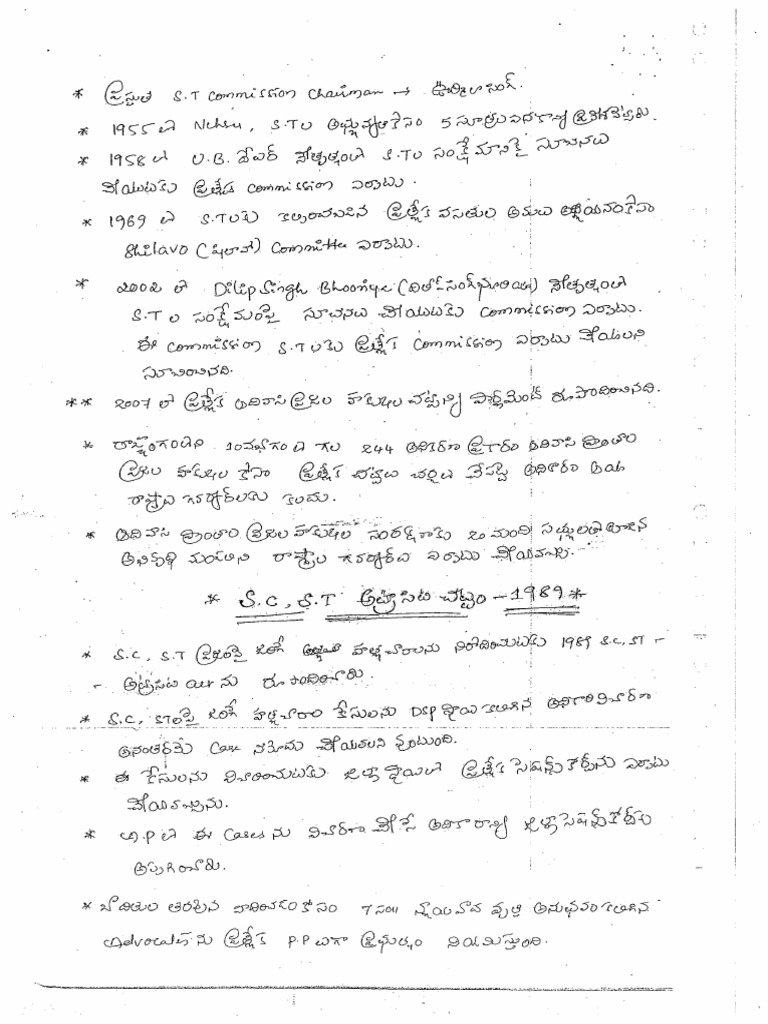 * ప్రస్తుత S.T Commission Chairman → ఊర్మిలాసింగ్.
* 1955 లో Nehru, S.T ల అభ్యున్నతి కోసం 5 సూత్రాల పథకాన్ని ప్రవేశపెట్టారు.
* 1958 లో U.B. దేబర్ నేతృత్వంలో S.T ల సంక్షేమానికై సూచనలు
చేయుటకు ప్రత్యేక Commission ఏర్పాటు.
* 1969 లో S.T లకు కల్పించబడిన ప్రత్యేక వసతుల అమలు అధ్యయనం కోసం
Shilavo (షిలావో) Committee ఏర్పాటు.
* 2002 లో Dilip Singh Bhooriya (దిలీప్ సింగ్ భూరియా) నేతృత్వంలో
S.T ల సంక్షేమంపై సూచనలు చేయుటకు Commission ఏర్పాటు.
ఈ Commission S.T లకు ప్రత్యేక Commission ఏర్పాటు చేయాలని
సూచించినది.
** 2007 లో ప్రత్యేక ఆదివాసి ప్రజల హక్కుల చట్టాన్ని పార్లమెంట్ రూపొందించినది.
* రాజ్యాంగంలోని 10వభాగంలో గల 244 అధికరణ ప్రకారం ఆదివాసి ప్రాంతాల
ప్రజల హక్కుల కోసం ప్రత్యేక చట్టాలు చర్యలు చేపట్టే అధికారం ఆయా
రాష్ట్రాల గవర్నర్లకు కలదు.
* ఆదివాసి ప్రాంతాల ప్రజల హక్కుల సంరక్షణకు 20 మంది సభ్యులతో కూడిన
అభివృద్ధి మండలిని రాష్ట్రాల గవర్నర్లు ఏర్పాటు చేయవచ్చు.
* S.C, S.T అట్రాసిటి చట్టం - 1989 *
* S.C, S.T ప్రజలపై జరిగే హత్యాచారాలను నిరోధించుటకు 1989 S.C, ST -
- అట్రాసిటి Act ను రూపొందించారు.
* S.C, STలపై జరిగే హత్యాచారాల కేసులను DSP స్థాయి కలిగిన అధికారి విచారణ
అనంతరమే Case నమోదు చేయాలని వుంటుంది.
* ఈ కేసులను విచారించుటకు జిల్లా స్థాయిలో ప్రత్యేక సెషన్స్ కోర్టును ఏర్పాటు
చేయవచ్చును.
* A.P లో ఈ Cases ను విచారణ చేసే అధికారాన్ని జిల్లా సెషన్స్ కోర్టుకు
అప్పగించారు.
* బాధితుల తరపున వాదించడం కోసం 7 సం॥ న్యాయవాద వృత్తి అనుభవం కలిగిన
Advocate ను ప్రత్యేక P.P లుగా ప్రభుత్వం నియమిస్తుంది.